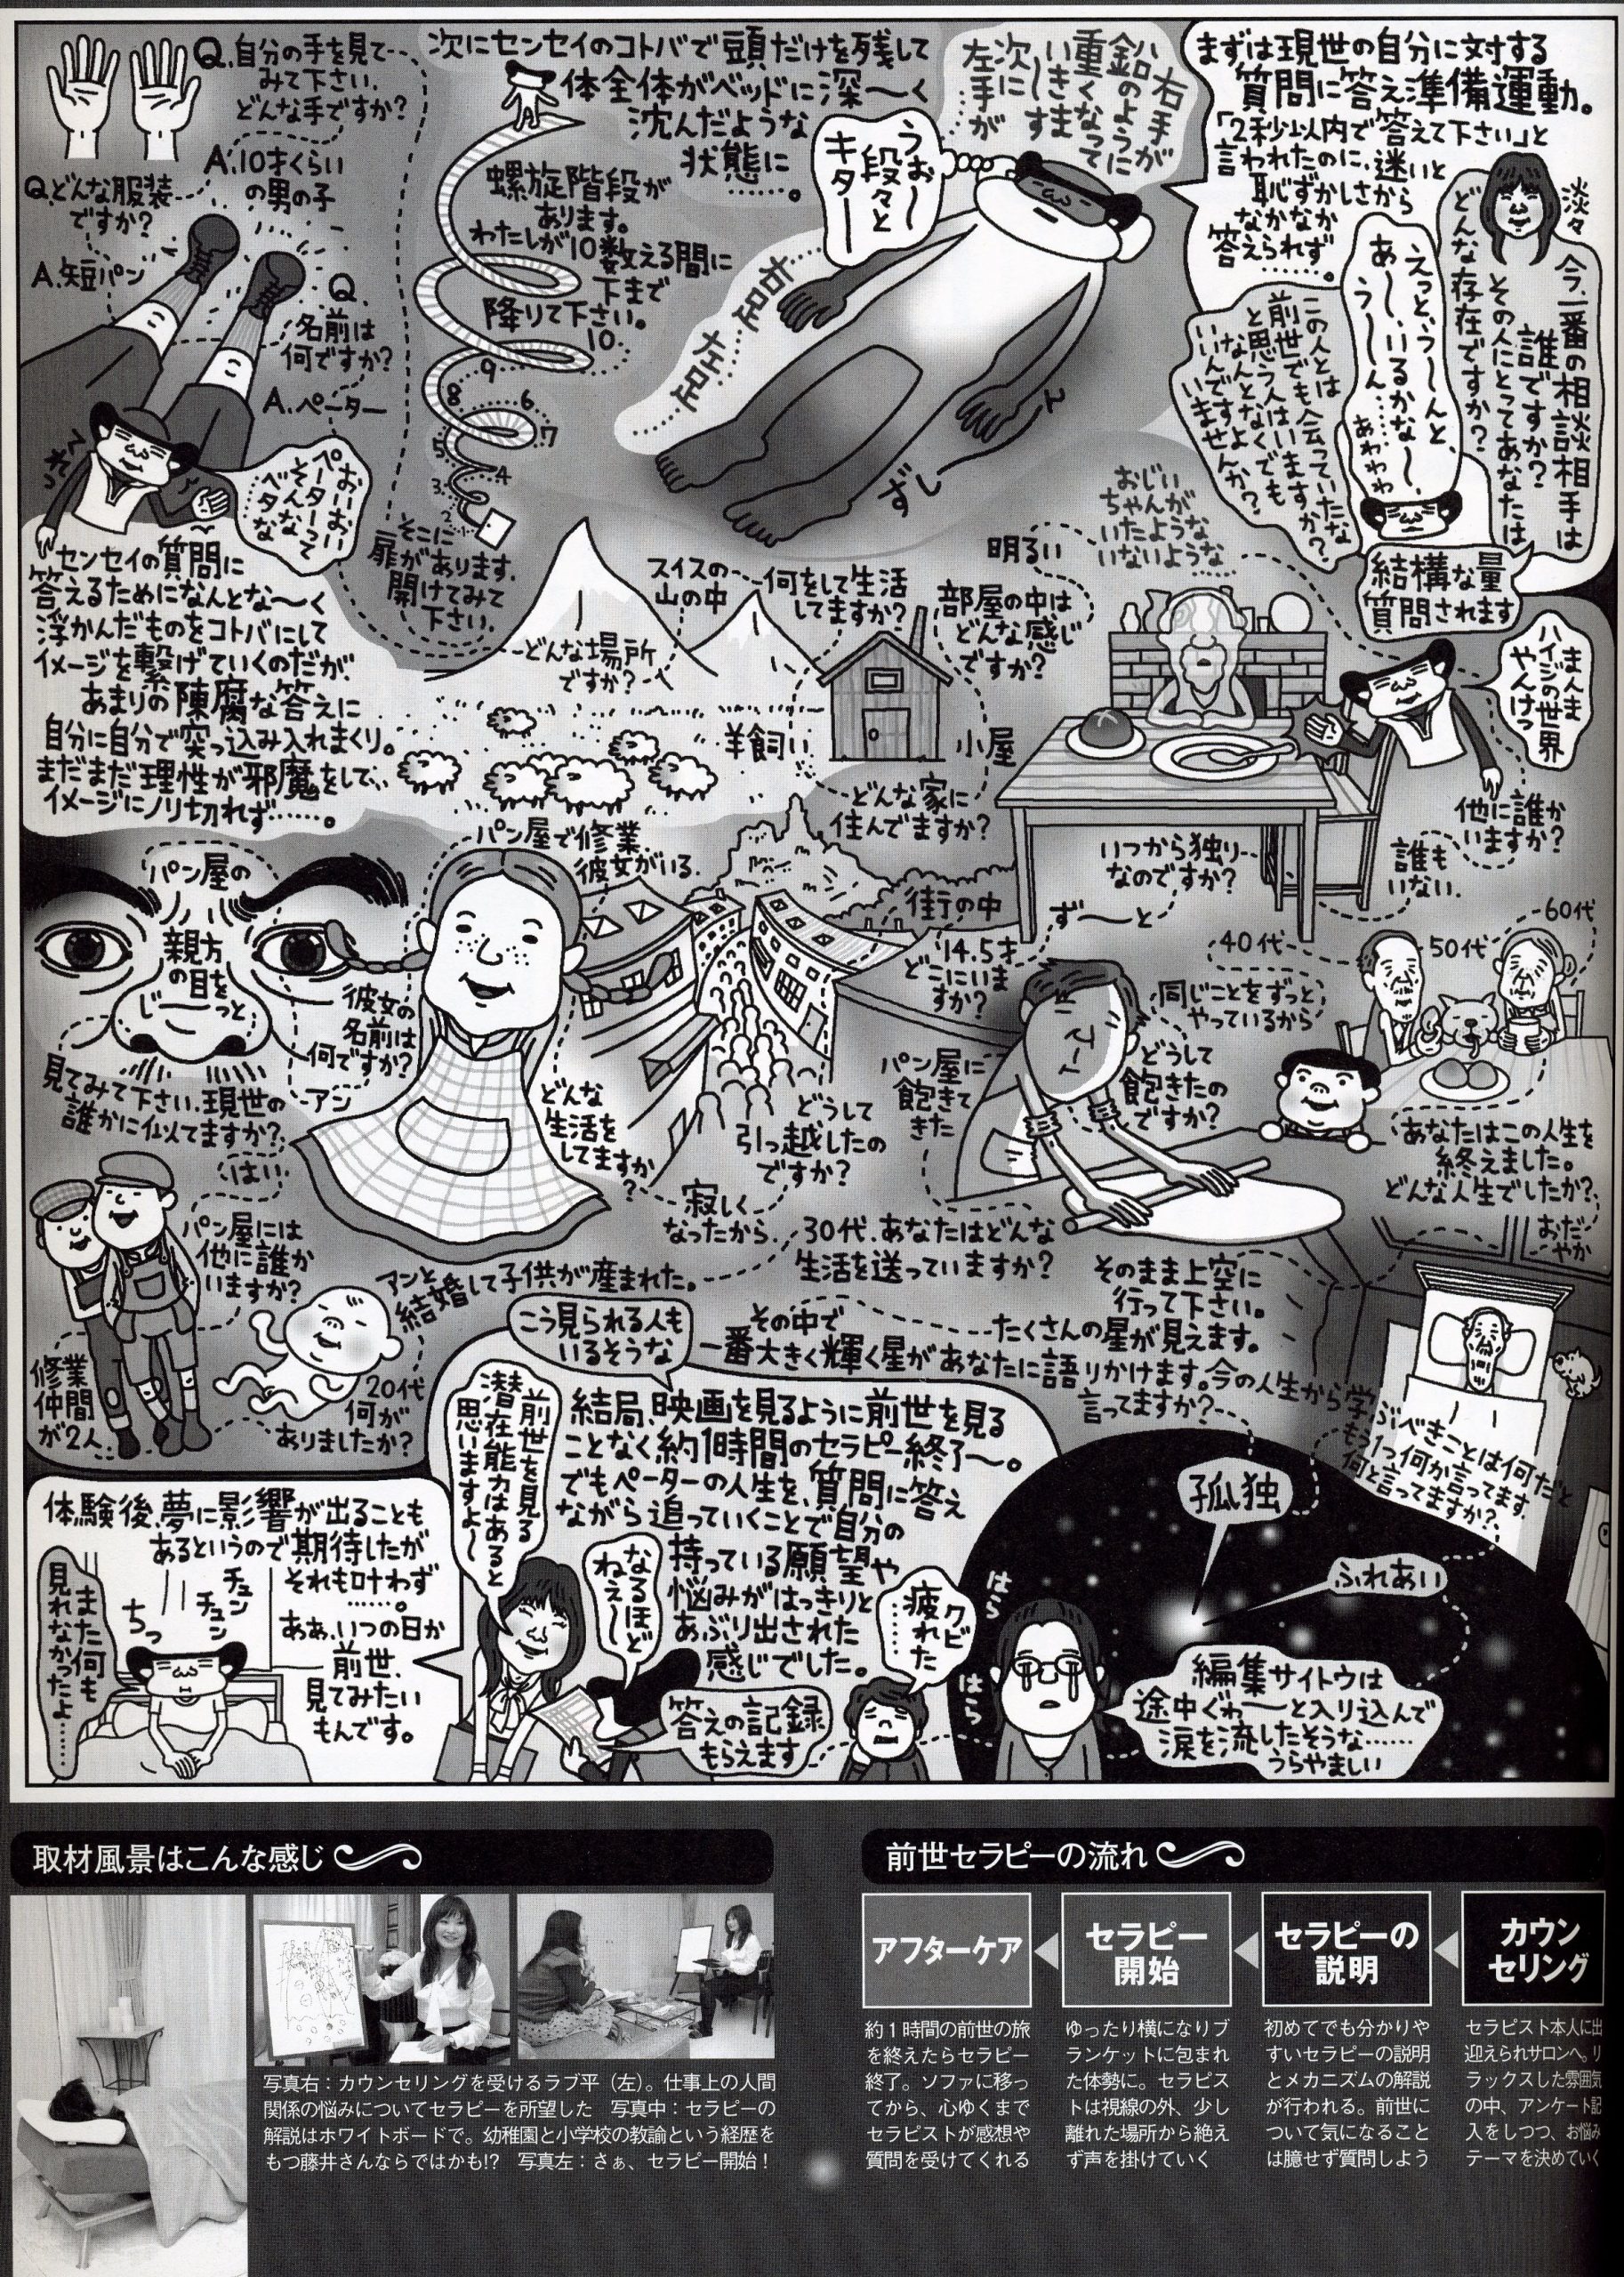 まずは現世の自分に対する
質問に答え準備運動。
「2秒以内で答えて下さい」と
言われたのに、迷いと
恥ずかしさから
なかなか
答えられず
……。
淡々
今、一番の相談相手は
誰ですか?
その人にとってあなたは
どんな存在ですか?
えっと、う〜んと、
あ〜、いるかな〜、
う〜ん……あわわわ
この人とは
前世でも会っていたな
と思う人はいますか?
なんとなくでも
いいんですよ
いませんか?
結構な量
質問されます
右手が
鉛のように
重くなって
いきます
次に
左手が
……
うお〜
段々と
キター
右足……
左足……
ずしーん
次にセンセイのコトバで頭だけを残して
体全体がベッドに深〜く
沈んだような
状態に
……。
螺旋階段が
あります。
わたしが10数える間に
下まで
降りて下さい。
10
9
8
7
6
5
4
3
2
そこに
扉があります。
開けてみて
下さい。
Q.自分の手を見て
みて下さい.
どんな手ですか?
A.10才くらい
の男の子
Q.どんな服装
ですか?
A.短パン
Q.
名前は
何ですか?
A.ペーター
おいおい
ペーターって
そんな
ベタな
……
センセイの質問に
答えるためになんとな〜く
浮かんだものをコトバにして
イメージを繋げていくのだが、
あまりの陳腐な答えに
自分に自分で突っ込み入れまくり。
まだまだ理性が邪魔をして、
イメージにノリ切れず……。
どんな場所
ですか?
スイスの
山の中
何をして生活
してますか?
羊飼い
どんな家に
住んでますか?
小屋
部屋の中は
どんな感じ
ですか?
明るい
おじい
ちゃんが
いたような
いないような
……
まんま
ハイジの世界
やんけっ
他に誰か
いますか?
誰も
いない.
いつから独り
なのですか?
ず〜っと
14.5才
どこにいま
すか?
街の中
どうして
引っ越したの
ですか?
寂しく
なったから.
どんな
生活を
してますか
?
パン屋で修業.
彼女がいる.
彼女の
名前は
何ですか?
アン
パン屋の
親方
の目を
じーっと
見てみて下さい.現世の
誰かに似てますか?.
はい.
パン屋には
他に誰か
いますか?
修業
仲間
が2人.
20代
何が
ありましたか?
アンと
結婚して子供が産まれた。
30代.あなたはどんな
生活を送っていますか?
パン屋に
飽きて
きた
どうして
飽きたの
ですか?
同じことをずっと
やっているから
40代
50代
60代
あなたはこの人生を
終えました。
どんな人生でしたか?
おだ
やか
そのまま上空に
行って下さい。
たくさんの星が見えます。
その中で
一番大きく輝く星があなたに語りかけます。今の人生から学ぶべきことは何だと
言ってますか?
もう1つ何か言ってます.
何と言ってますか?
孤独
ふれあい
編集サイトウは
途中ぐわ〜っと入り込んで
涙を流したそうな……
うらやましい
はら
はら
こう見られる人も
いるそうな
結局、映画を見るように前世を見る
ことなく約1時間のセラピー終了〜。
でもペーターの人生を、質問に答え
ながら追っていくことで自分の
持っている願望や
悩みがはっきりと
あぶり出された
感じでした。
クビ
疲れた
……
なるほど
ねぇ〜
答えの記録
もらえます
前世を見る
潜在能力はあると
思いますよ〜
体験後、夢に影響が出ることも
あるというので期待したが
それも叶わず
……。
ああ、いつの日か
前世、
見てみたい
もんです。
チュン
チュン
ちっ
また何も
見れなかったよ……
取材風景はこんな感じ
写真右:カウンセリングを受けるラブ平(左)。仕事上の人間
関係の悩みについてセラピーを所望した　写真中:セラピーの
解説はホワイトボードで。幼稚園と小学校の教諭という経歴を
もつ藤井さんならではかも!?　写真左:さぁ、セラピー開始!
前世セラピーの流れ
カウン
セリング
セラピスト本人に出
迎えられサロンへ。リ
ラックスした雰囲気
の中、アンケート記
入をしつつ、お悩み
テーマを決めていく
セラピーの
説明
初めてでも分かりや
すいセラピーの説明
とメカニズムの解説
が行われる。前世に
ついて気になること
は臆せず質問しよう
セラピー
開始
ゆったり横になりブ
ランケットに包まれ
た体勢に。セラピス
トは視線の外、少し
離れた場所から絶え
ず声を掛けていく
アフターケア
約1時間の前世の旅
を終えたらセラピー
終了。ソファに移っ
てから、心ゆくまで
セラピストが感想や
質問を受けてくれる